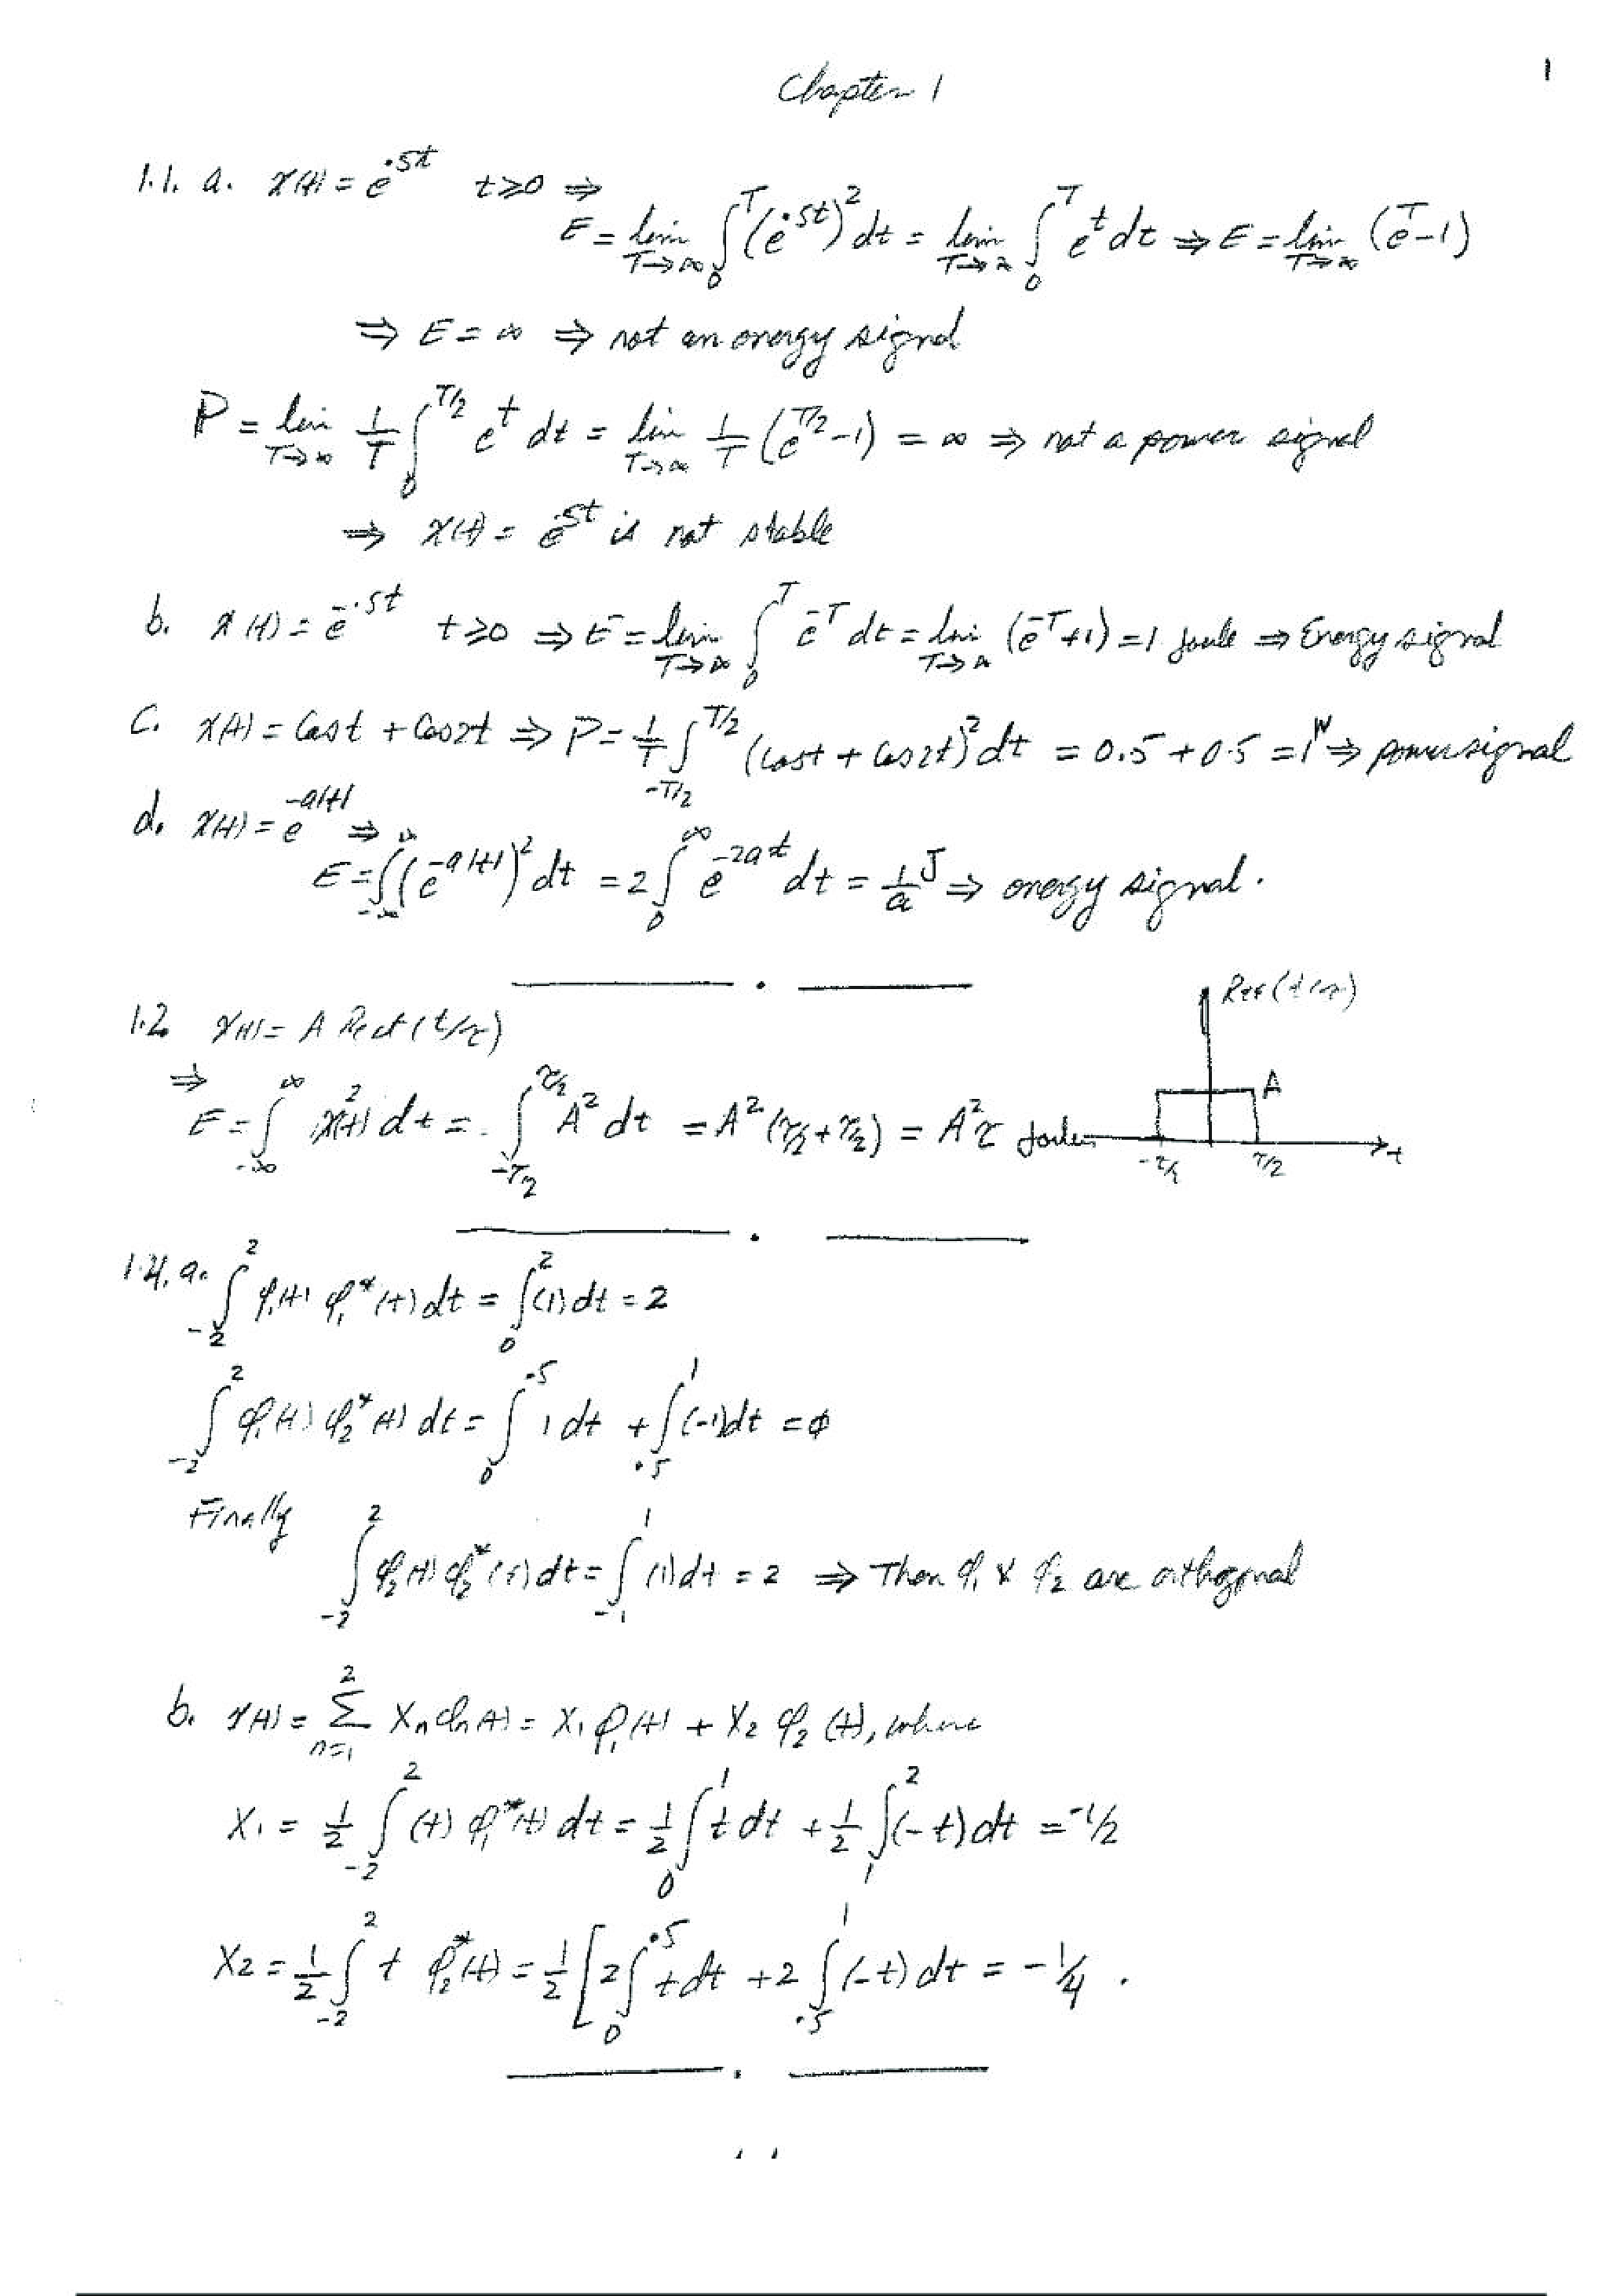 Chapter 1
1
1.1. a. x(t) = e^{.5t} t ≥ 0 ⇒
E = lim_{T→∞} ∫_0^T (e^{.5t})^2 dt = lim_{T→∞} ∫_0^T e^t dt ⇒ E = lim_{T→∞} (e^T - 1)
⇒ E = ∞ ⇒ not an energy signal
P = lim_{T→∞} 1/T ∫_0^{T/2} e^t dt = lim_{T→∞} 1/T (e^{T/2} - 1) = ∞ ⇒ not a power signal
⇒ x(t) = e^{.5t} is not stable
b. x(t) = e^{-.5t} t ≥ 0 ⇒ E = lim_{T→∞} ∫_0^T e^{-T} dt = lim_{T→∞} (e^{-T} + 1) = 1 Joule ⇒ Energy signal
c. x(t) = Cos t + Cos 2t ⇒ P = 1/T ∫_{-T/2}^{T/2} (Cos t + Cos 2t)^2 dt = 0.5 + 0.5 = 1 W ⇒ power signal
d. x(t) = e^{-a|t|} ⇒
E = ∫_{-∞}^{∞} (e^{-a|t|})^2 dt = 2 ∫_0^∞ e^{-2at} dt = 1/a J ⇒ energy signal.
1.2 x(t) = A Rect (t/τ)
⇒
E = ∫_{-∞}^{∞} x^2(t) dt = ∫_{-τ/2}^{τ/2} A^2 dt = A^2 (τ/2 + τ/2) = A^2 τ Joules
A
-τ/2 τ/2 t
1.4. a. ∫_{-2}^{2} φ_1(t) φ_1^*(t) dt = ∫_0^2 (1) dt = 2
∫_{-2}^{2} φ_1(t) φ_2^*(t) dt = ∫_0^{.5} 1 dt + ∫_{.5}^1 (-1) dt = φ
Finally
∫_{-2}^{2} φ_2(t) φ_2^*(t) dt = ∫_{-1}^{1} (1) dt = 2 ⇒ Then φ_1 & φ_2 are orthogonal
b. x(t) = Σ_{n=1}^{2} X_n φ_n(t) = X_1 φ_1(t) + X_2 φ_2(t), where
X_1 = 1/2 ∫_{-2}^{2} (t) φ_1^*(t) dt = 1/2 ∫_0^1 t dt + 1/2 ∫_1^2 (-t) dt = -1/2
X_2 = 1/2 ∫_{-2}^{2} t φ_2^*(t) = 1/2 [ 2 ∫_0^{.5} t dt + 2 ∫_{.5}^1 (-t) dt = -1/4 .